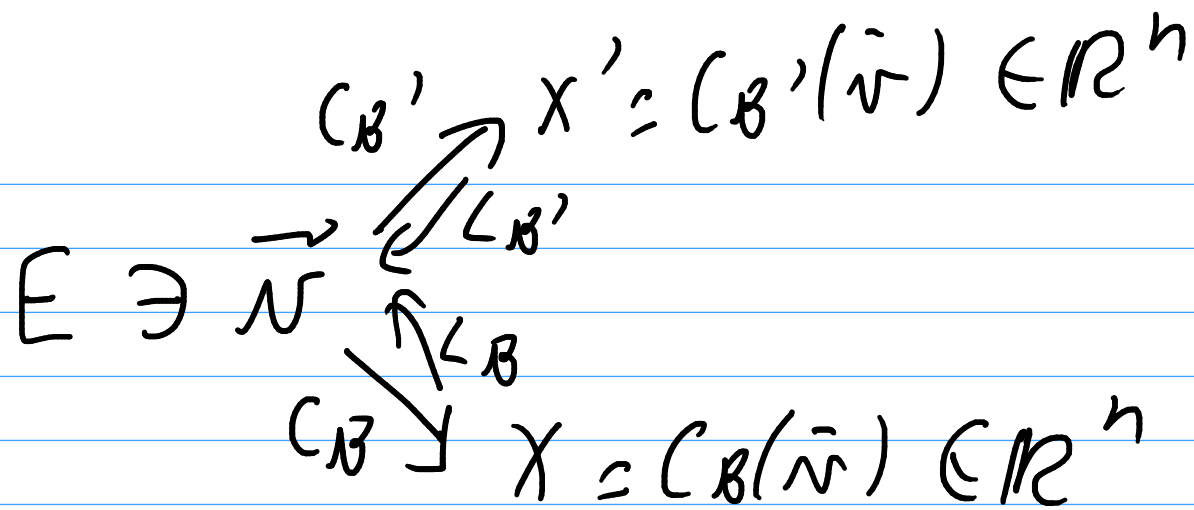 C_B' X' = C_B'(v̄) ∈ ℝⁿ
L_B'
E ∋ v⃗
L_B
C_B X = C_B(v̄) ∈ ℝⁿ